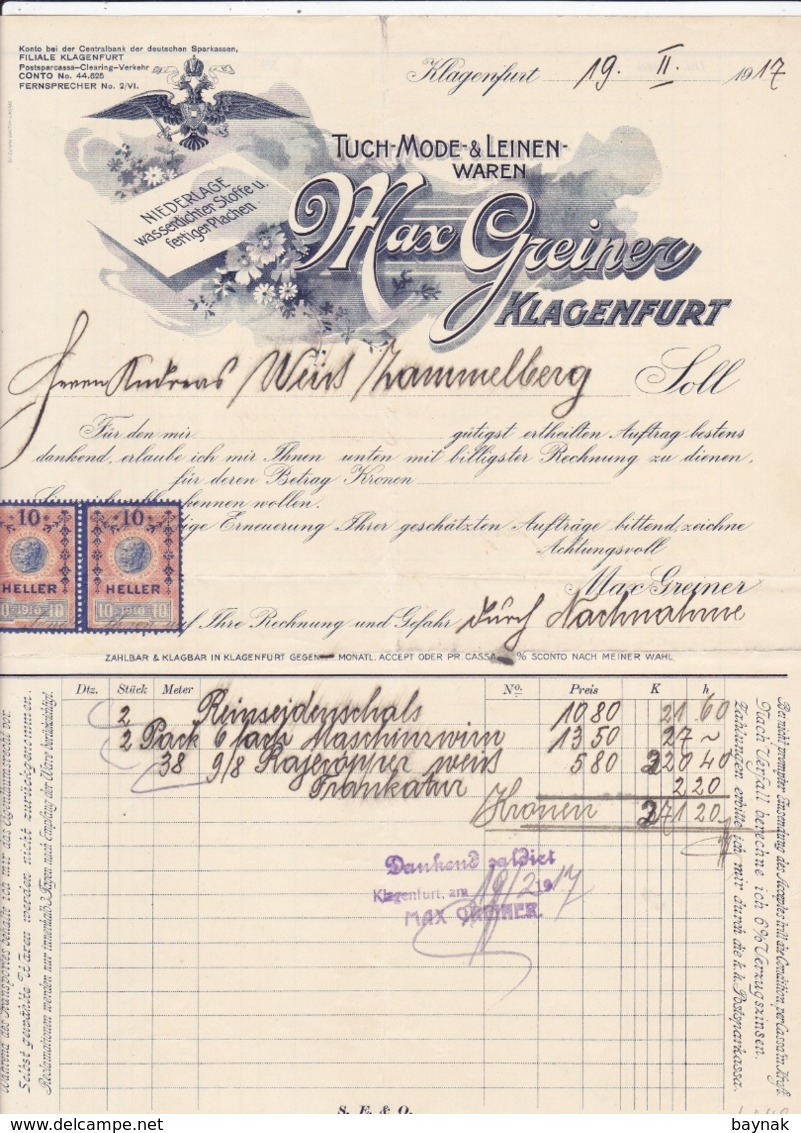 Konto bei der Centralbank der deutschen Sparkassen,
FILIALE KLAGENFURT
Postsparcassa-Clearing-Verkehr
CONTO No. 44.625
FERNSPRECHER No. 2/VI.
Klagenfurt 19. II. 1917
TUCH-MODE-& LEINEN-
WAREN
NIEDERLAGE
wasserdichter Stoffe u.
fertiger Plachen
Max Greiner
KLAGENFURT
Herrn Andreas Weiss Zammelberg Soll
Für den mir gütigst ertheilten Auftrag bestens
dankend, erlaube ich mir Ihnen unten mit billigster Rechnung zu dienen,
für deren Betrag Kronen
kennen wollen.
ige Erneuerung Ihrer geschätzten Aufträge bittend, zeichne
Achtungsvoll
Max Greiner
10 10
HELLER HELLER
10 1910 10
auf Ihre Rechnung und Gefahr durch Nachnahme
ZAHLBAR & KLAGBAR IN KLAGENFURT GEGEN MONATL. ACCEPT ODER PR. CASSA % SCONTO NACH MEINER WAHL
Dtz. Stück Meter No. Preis K h
2 Reinseidenschals 10 80 21 60
2 Pack 6 fach Maschinzwirn 13 50 27 ~
38 9/8 weiss 5 80 220 40
Frankatur 2 20
Kronen 271 20
Dankend saldiert
Klagenfurt, am 19/2 1917
MAX GREINER.
Während des Transportes behalte ich mir das Eigenthumsrecht vor.
Selbst gewählte Waren werden nicht zurückgenommen.
Reclamationen werden nur innerhalb 3 Tagen nach Empfang der Ware berücksichtigt.
Bei nicht prompter Einsendung des Acceptes tritt die Condition per Cassa in Kraft.
Nach Verfall berechne ich 6% Verzugszinsen.
Zahlungen erbitte ich mir durch die k. k. Postsparkassa.
S. E. & O.
baynak